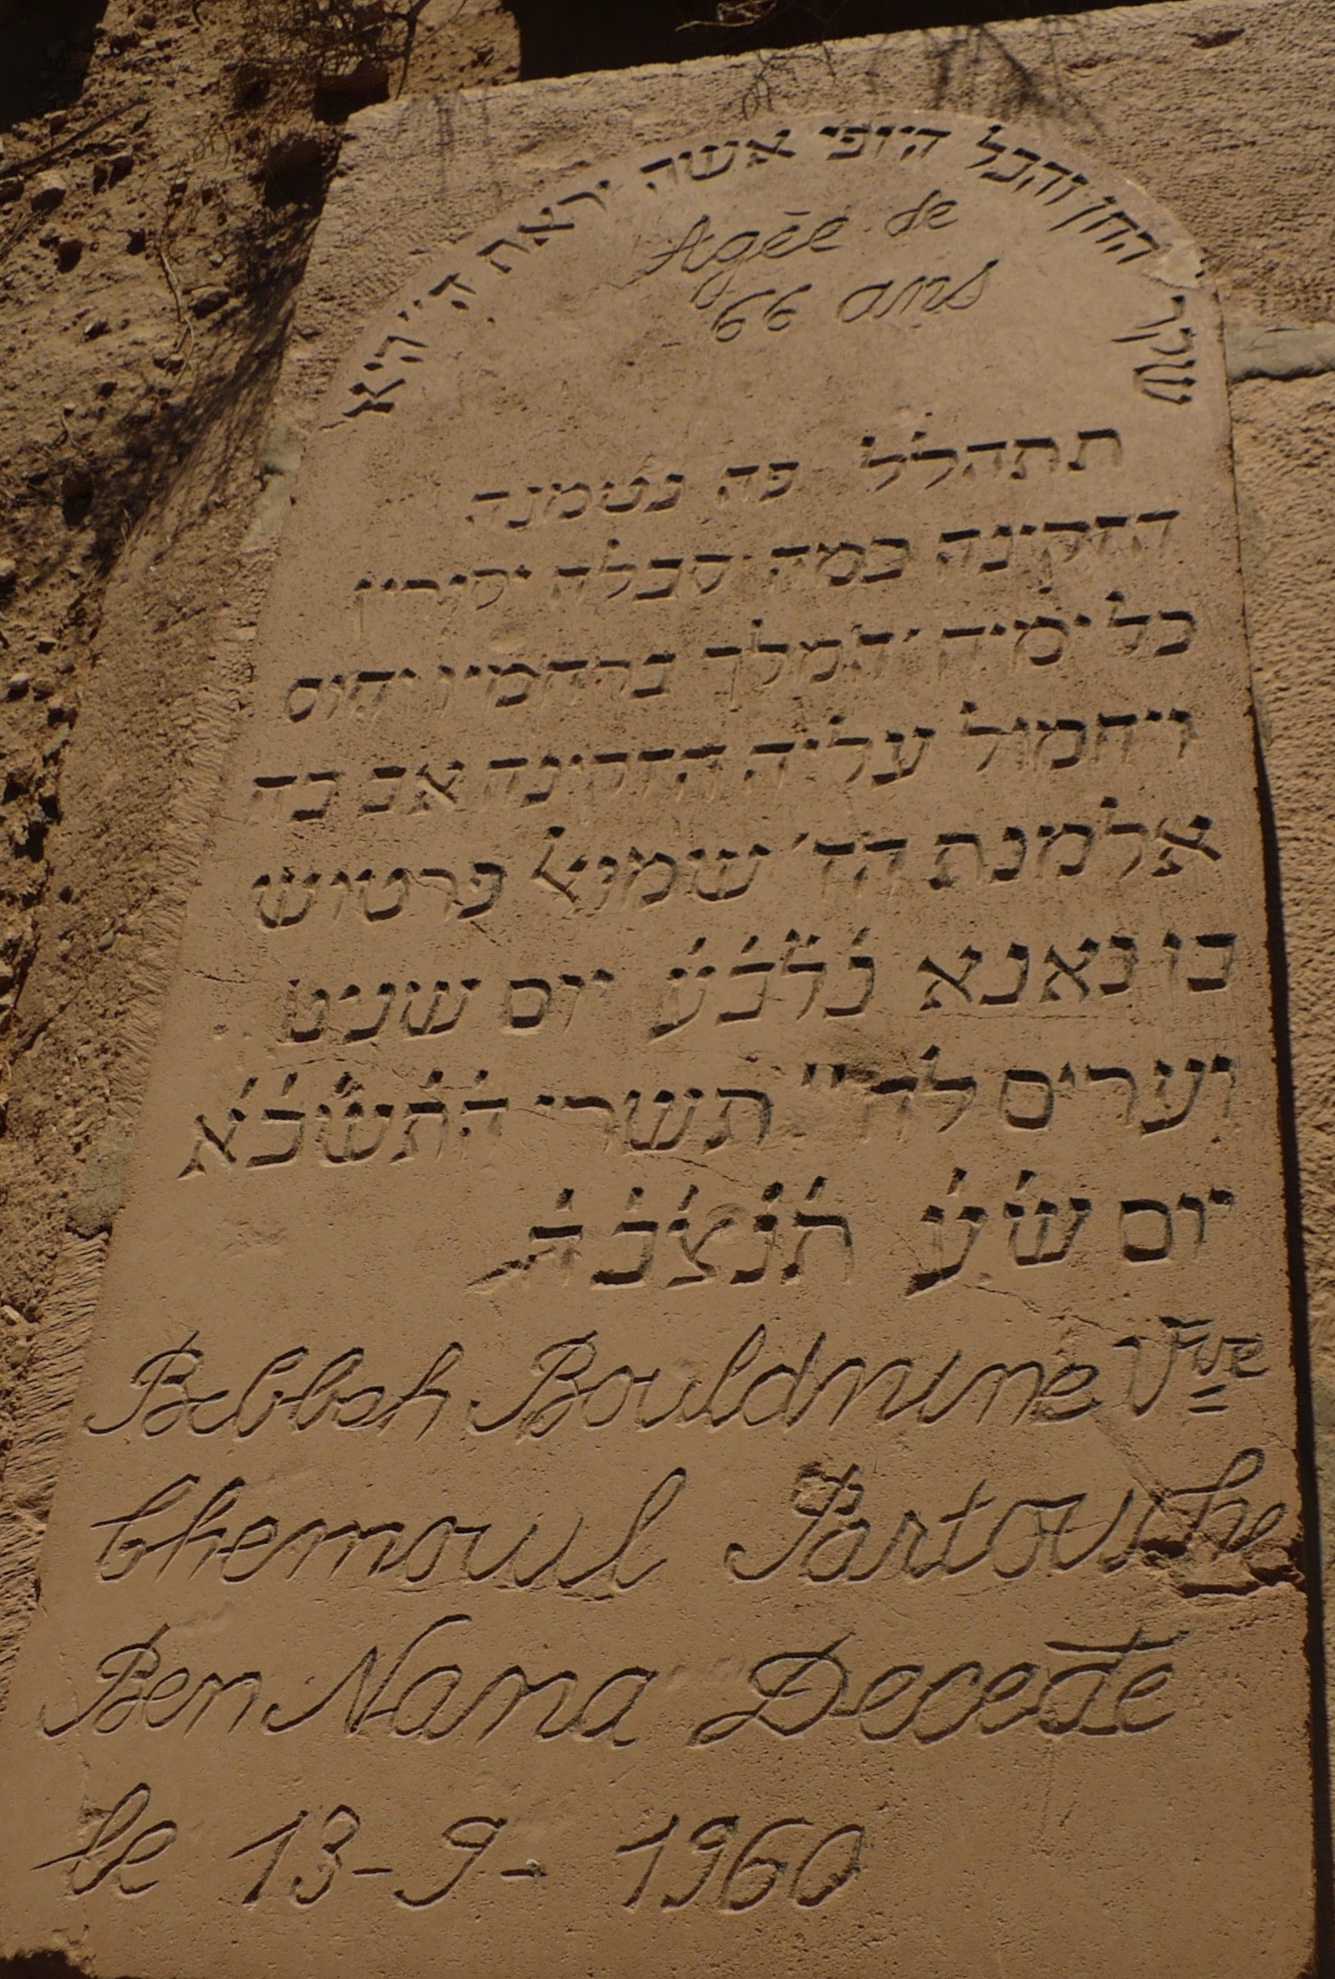 שקר החן והבל היופי אשה יראת ה'' היא
Agée de
66 ans
תתהלל פה נטמנה
הזקינה כמה סבלה יסירין
כל ימיה ה'מלך ברחמיו יחוס
ויחמול עליה הזקינה אב בה
אלמנת הר' שמואל פרטוש
בן נאנא נ'ל'ב'ע' יום שני
וערים לח'' תשרי ה'ת'ש'כ'א'
יום ש'ע' ת'נ'צ'ב'ה'
Bebbeh Bouldnine Vve
Chemoul Partouche
Ben Nana Decede
le 13-9-1960